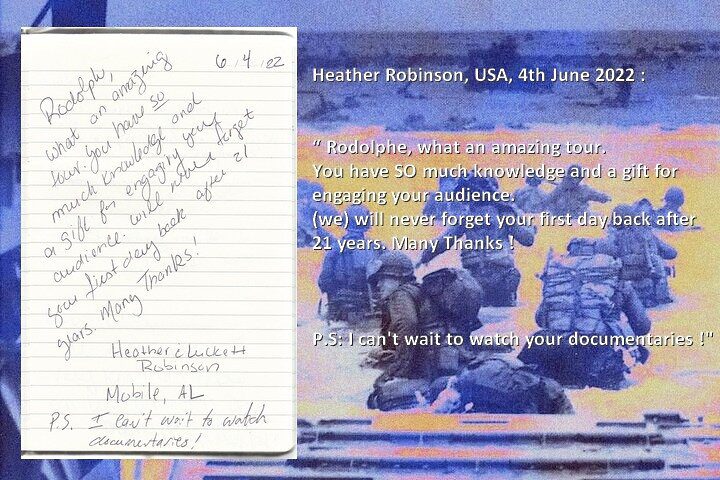 6/4/22
Rodolph,
What an amazing
tour. You have SO
much knowledge and
a gift for engaging your
audience. Will never forget
your first day back after 21
years. Many Thanks!
Heather & Luckett
Robinson
Mobile, AL
P.S. I can't wait to watch
documentaries!
Heather Robinson, USA, 4th June 2022 :
“ Rodolphe, what an amazing tour.
You have SO much knowledge and a gift for
engaging your audience.
(we) will never forget your first day back after
21 years. Many Thanks !
P.S: I can't wait to watch your documentaries !"